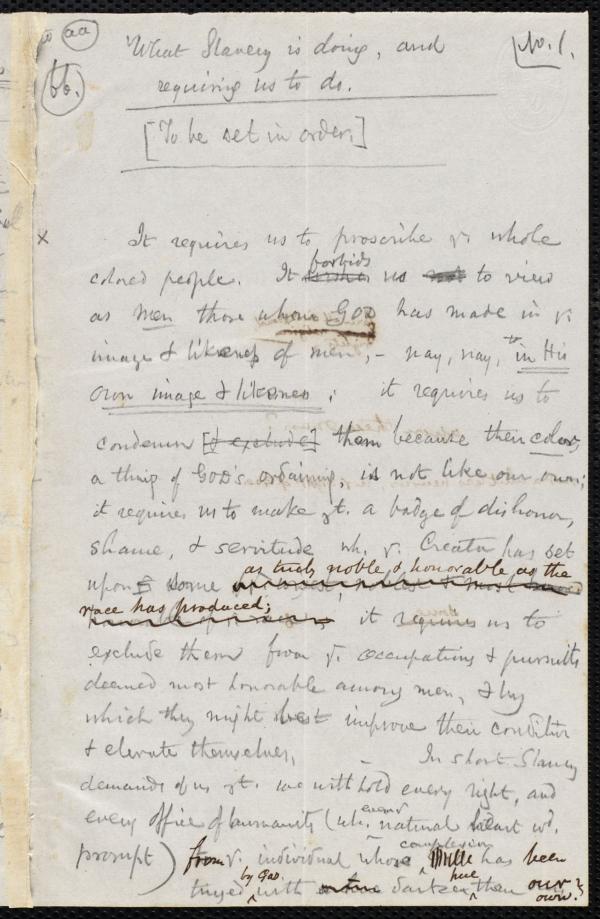 aa
bb.
No. 1.
What Slavery is doing, and
requiring us to do.
[To be set in order.]
x
It requires us to proscribe yᵉ whole
colored people. It forbids us not to view
as men those whom GOD has made in yᵉ
image & likeness of men, - nay, nay, in His
own image & likeness; it requires us to
condemn [& exclude] them because their color,
a thing of GOD's ordaining, is not like our own;
it requires us to make yt. a badge of dishonor,
shame, & servitude wh. yᵉ Creator has set
upon some as truly noble & honorable as the
race has produced; it requires us to
exclude them from yᵉ occupations & pursuits
deemed most honorable among men, & by
which they might best improve their condition
& elevate themselves.
In short Slavery
demands of us yt. we withhold every right, and
every office of humanity (wh. every natural heart wd.
prompt) from yᵉ individual whose complexion has been
tinged by God with hue darker than our own.